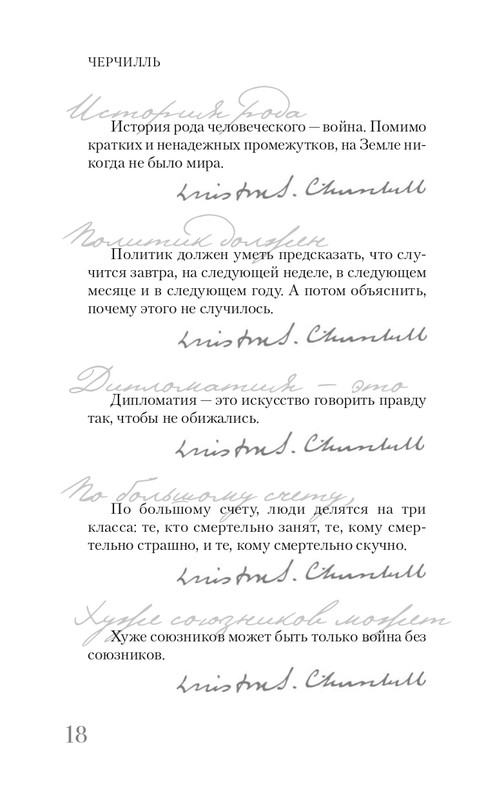 ЧЕРЧИЛЛЬ
История рода
История рода человеческого — война. Помимо
кратких и ненадежных промежутков, на Земле ни-
когда не было мира.
Winston S. Churchill
Политик должен
Политик должен уметь предсказать, что слу-
чится завтра, на следующей неделе, в следующем
месяце и в следующем году. А потом объяснить,
почему этого не случилось.
Winston S. Churchill
Дипломатия — это
Дипломатия — это искусство говорить правду
так, чтобы не обижались.
Winston S. Churchill
По большому счету,
По большому счету, люди делятся на три
класса: те, кто смертельно занят, те, кому смер-
тельно страшно, и те, кому смертельно скучно.
Winston S. Churchill
Хуже союзников может
Хуже союзников может быть только война без
союзников.
Winston S. Churchill
18